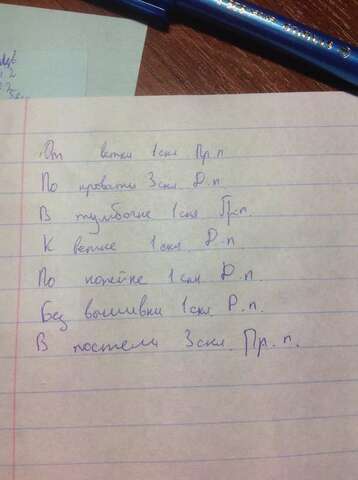 От ветки 1скл Пр.п
По кровати 3скл. Д.п.
В тумбочке 1скл Пр.п.
К ветке 1скл. Д.п.
По копейке 1скл. Д.п.
Без вышивки 1скл. Р.п.
В постели 3скл. Пр.п.